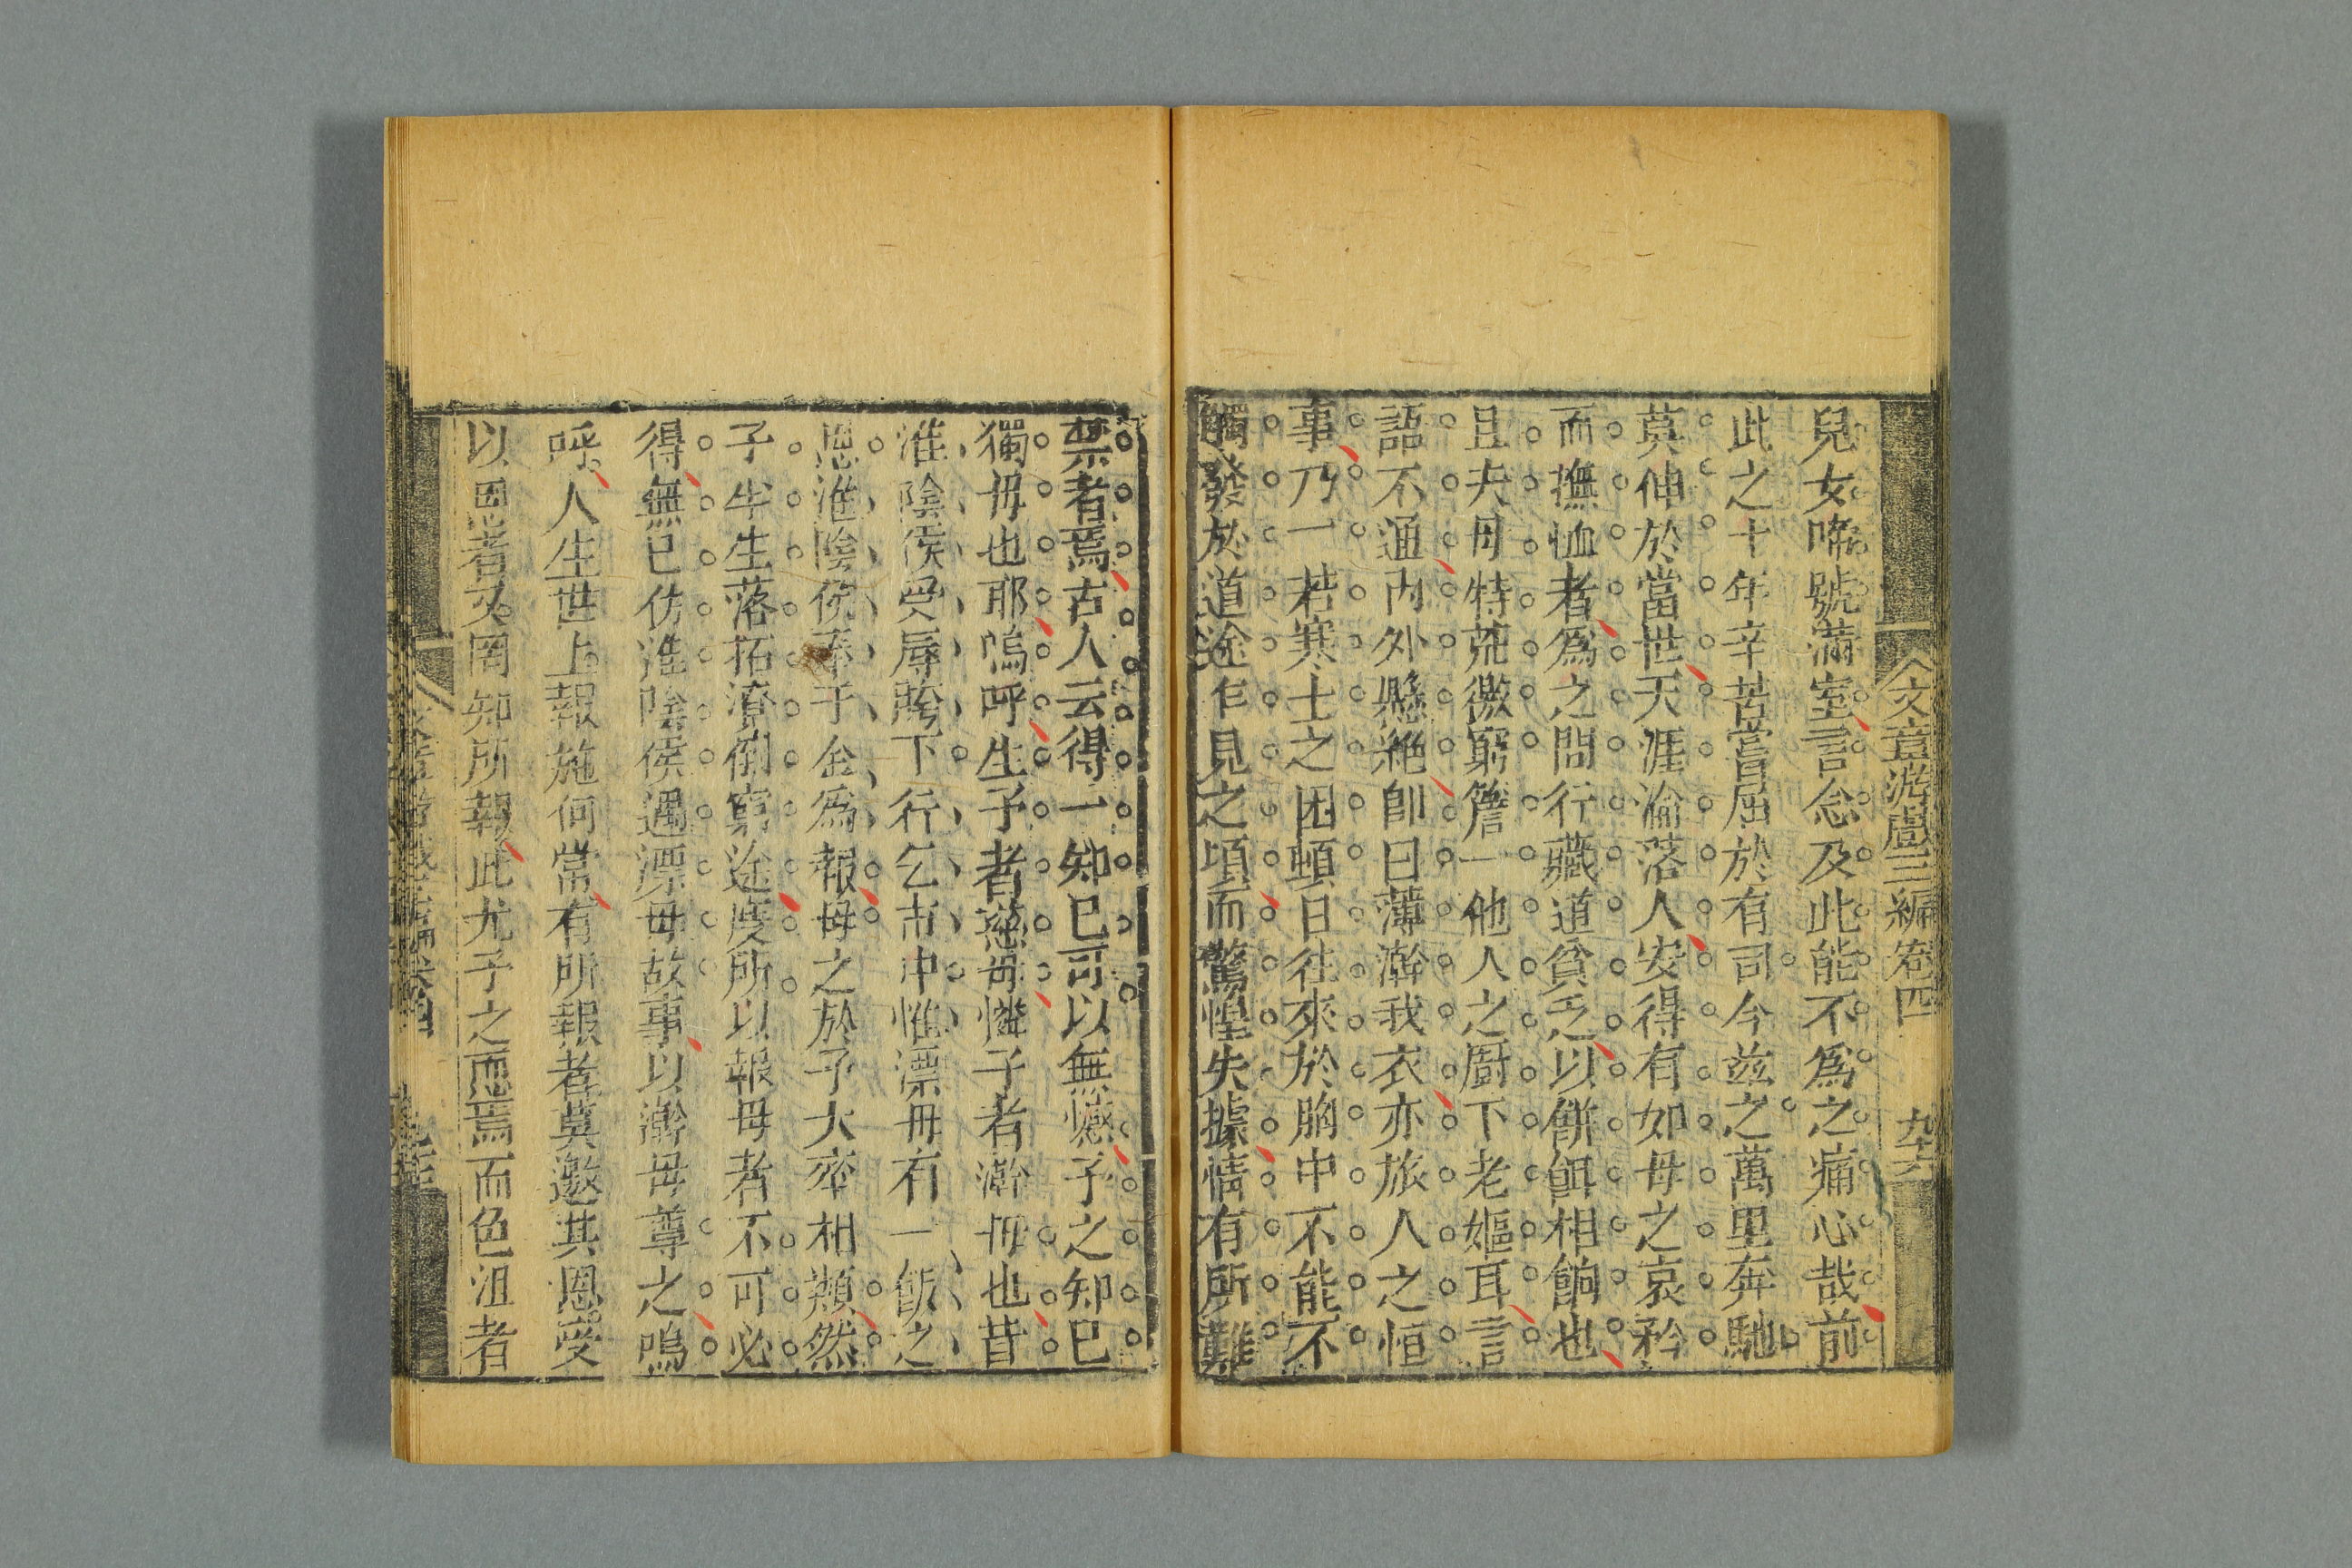 文章游戲三編卷四
兒女啼號滿室言念及此能不爲之痛心哉前
此之十年辛苦嘗屈於有司今茲之萬里奔馳
莫伸於當世天涯淪落人安得有如母之哀矜
而撫恤者爲之問行藏道貧乏以餅餌相餉也
且夫母特荒徼窮簷一他人之廚下老嫗耳言
語不通內外懸絕卽曰薄澣我衣亦旅人之恒
事乃一若寒士之困頓日往來於胸中不能不
觸發於道途乍見之頃而驚惶失據情有所難
禁者焉古人云得一知已可以無憾予之知已
獨母也耶嗚呼生予者慈母憐予者澣母也昔
淮陰侯受辱胯下行乞市中惟漂母有一飯之
恩淮陰侯奉千金爲報母之於予大率相類然
予半生落拓潦倒窮途度所以報母者不可必
得無已仿淮陰侯遇漂母故事以澣母尊之嗚
呼人生世上報施何常有所報者莫邀其恩受
以恩者又罔知所報此尤予之恧焉而色沮者